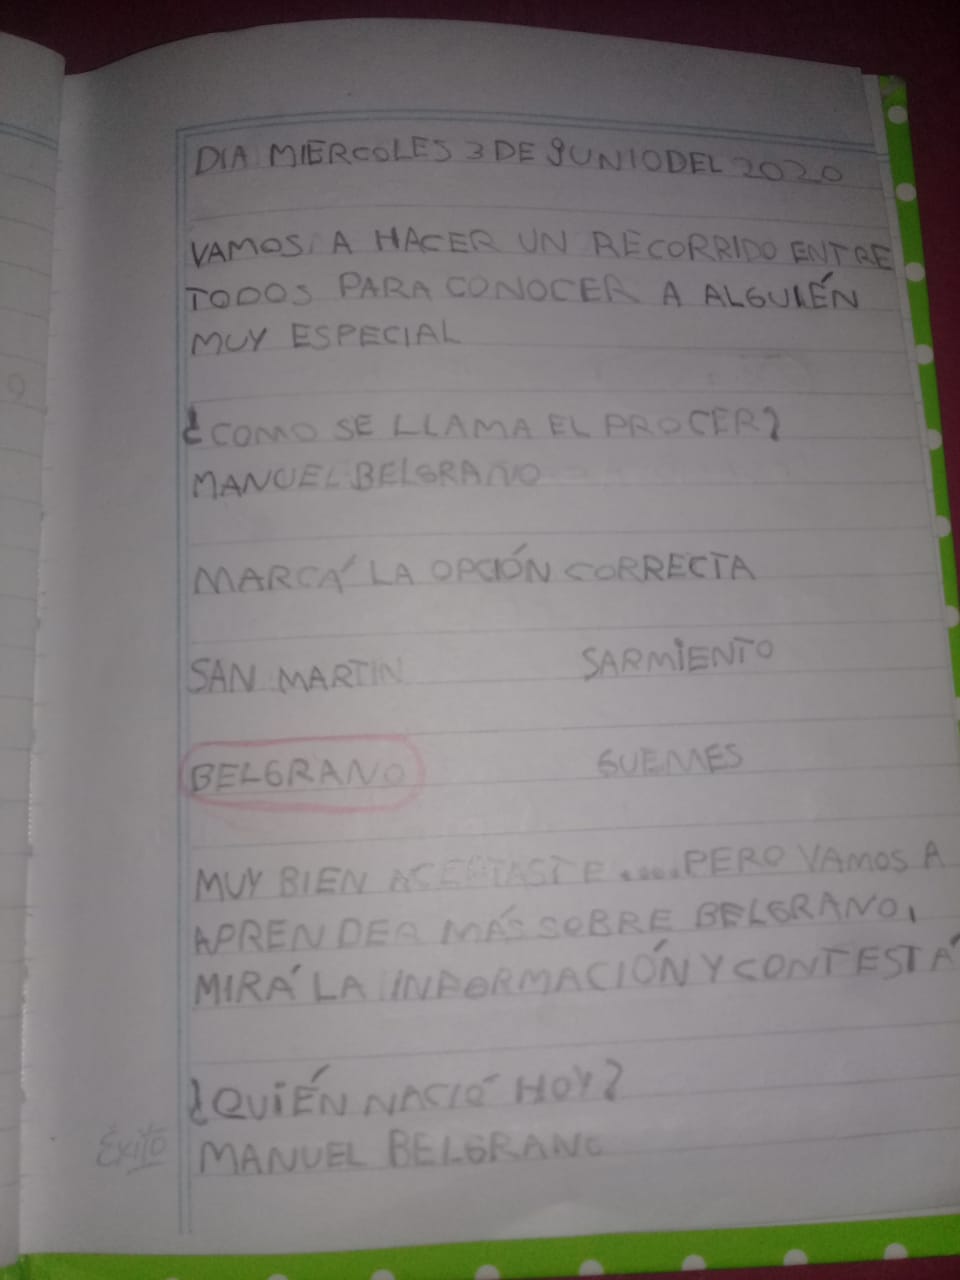 DIA MIERCOLES 3 DE JUNIO DEL 2020
VAMOS A HACER UN RECORRIDO ENTRE
TODOS PARA CONOCER A ALGUIÉN
MUY ESPECIAL
¿COMO SE LLAMA EL PROCER?
MANUEL BELGRANO
MARCÁ LA OPCIÓN CORRECTA
SAN MARTIN SARMIENTO
BELGRANO GUEMES
MUY BIEN ACERTASTE.....PERO VAMOS A
APRENDER MÁS SOBRE BELGRANO,
MIRÁ LA INFORMACIÓN Y CONTESTÁ
¿QUIÉN NACIÓ HOY?
Éxito MANUEL BELGRANO